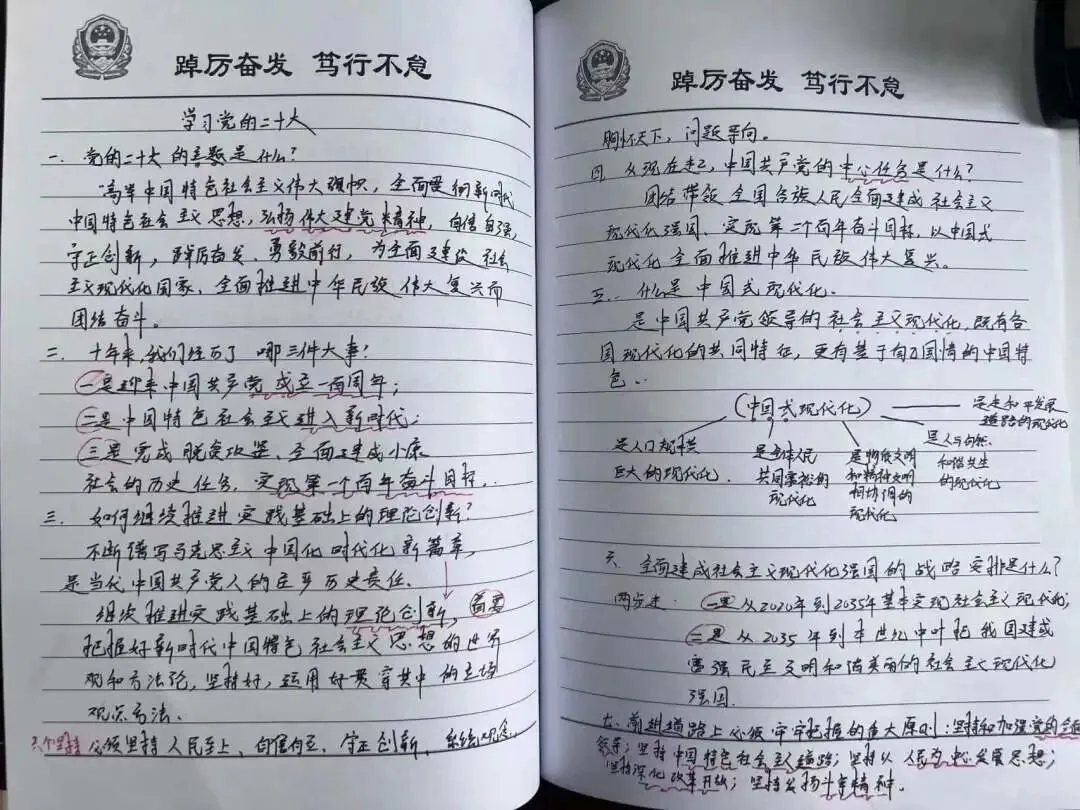 踔厉奋发 笃行不怠
学习党的二十大
一. 党的二十大的主题是什么?
高举中国特色社会主义伟大旗帜,全面贯彻新时代
中国特色社会主义思想,弘扬伟大建党精神,自信自强,
守正创新,踔厉奋发、勇毅前行,为全面建设社会
主义现代化国家、全面推进中华民族伟大复兴而
团结奋斗。
二. 十年来,我们经历了哪三件大事?
一是迎来中国共产党成立一百周年;
二是中国特色社会主义进入新时代;
三是完成脱贫攻坚、全面建成小康
社会的历史任务,实现第一个百年奋斗目标.
三. 如何继续推进实践基础上的理论创新?
不断谱写马克思主义中国化时代化新篇章,
是当代中国共产党人的庄严历史责任.
继续推进实践基础上的理论创新,首要
把握好新时代中国特色社会主义思想的世界
观和方法论,坚持好,运用好贯穿其中的立场
观点方法.
六个坚持 必须坚持人民至上、自信自立、守正创新、系统观念、
踔厉奋发 笃行不怠
胸怀天下,问题导向。
四. 从现在起,中国共产党的中心任务是什么?
团结带领全国各族人民全面建成社会主义
现代化强国、实现第二个百年奋斗目标,以中国式
现代化全面推进中华民族伟大复兴。
五. 什么是中国式现代化.
是中国共产党领导的社会主义现代化,既有各
国现代化的共同特征,更有基于自己国情的中国特
色.
(中国式现代化)
是人口规模
巨大的现代化.
是全体人民
共同富裕的
现代化
是物质文明
和精神文明
相协调的
现代化
是人与自然
和谐共生
的现代化
是走和平发展
道路的现代化
六. 全面建成社会主义现代化强国的战略安排是什么?
两步走. 一是从2020年到2035年基本实现社会主义现代化;
二是从2035年到本世纪中叶把我国建成
富强民主文明和谐美丽的社会主义现代化
强国.
七.前进道路上必须牢牢把握的重大原则:坚持和加强党的全面
领导;坚持中国特色社会主义道路;坚持以人民为中心发展思想;
坚持深化改革开放;坚持发扬斗争精神.